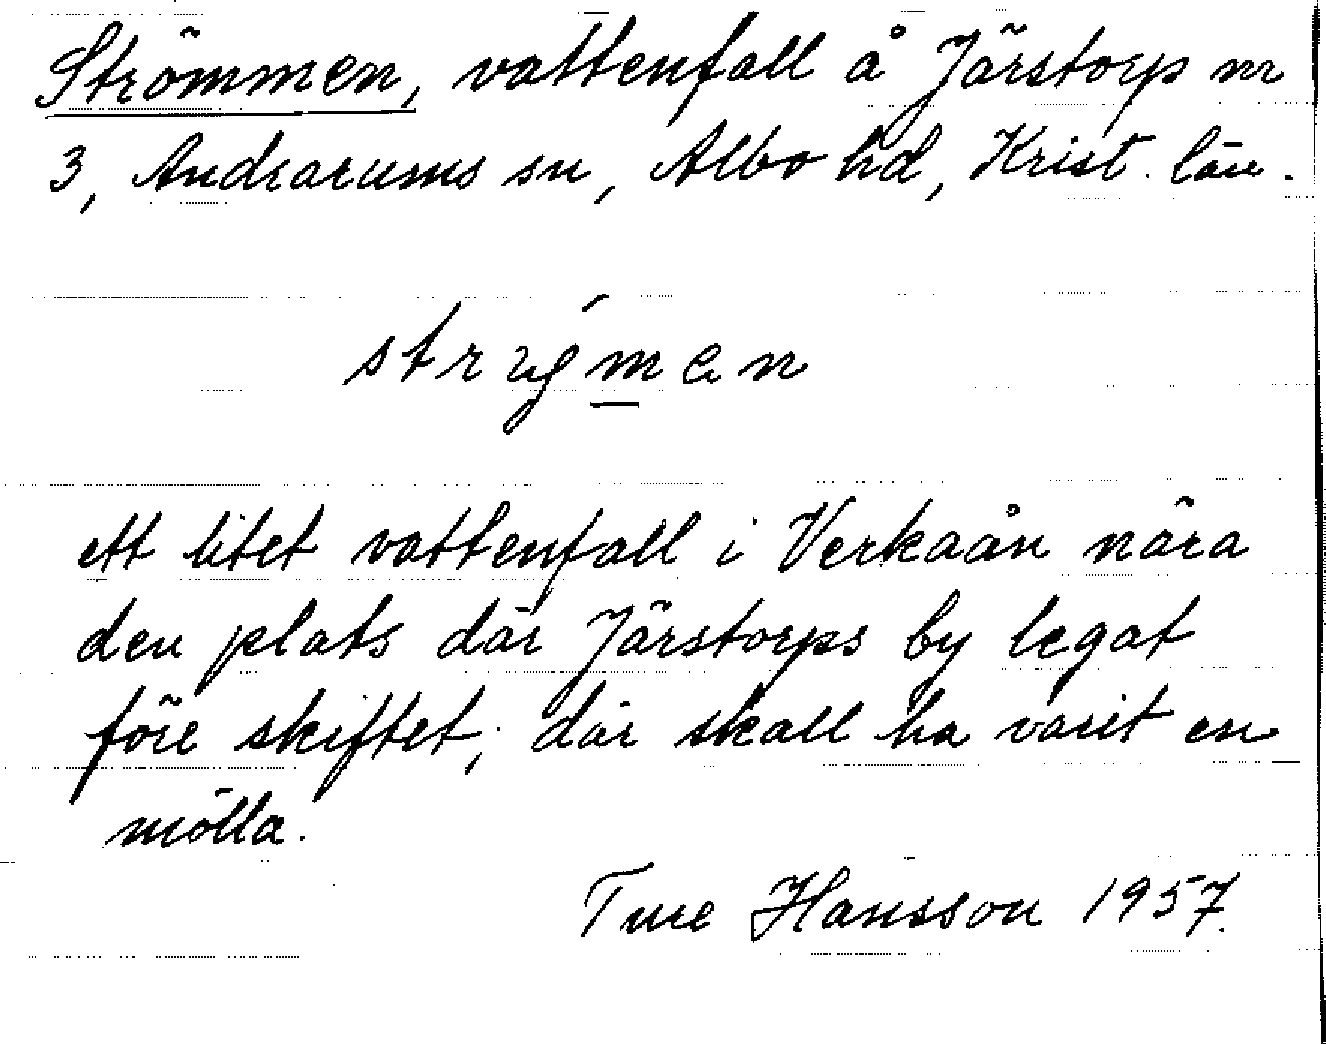 Strömmen, vattenfall å Järstorp nr
3, Andrarums sn, Albo hd, Krist. län.
ett litet vattenfall i Verkaån nära
den plats där Järstorps by legat
före skiftet; där skall ha varit en
mölla.
Ture Hansson 1957.